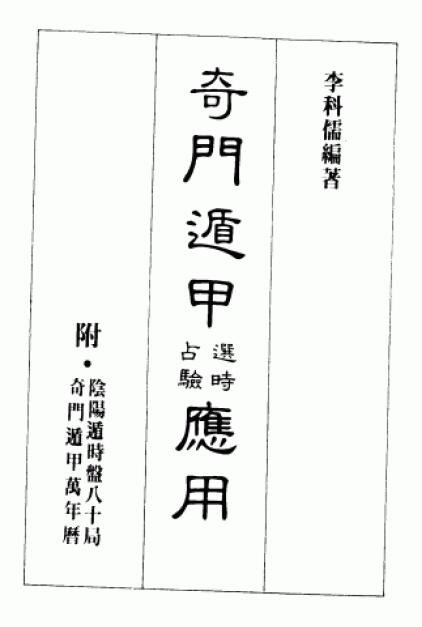 李科儒編著
奇門遁甲
選時
占驗
應用
附·
陰陽遁時盤八十局
奇門遁甲萬年曆